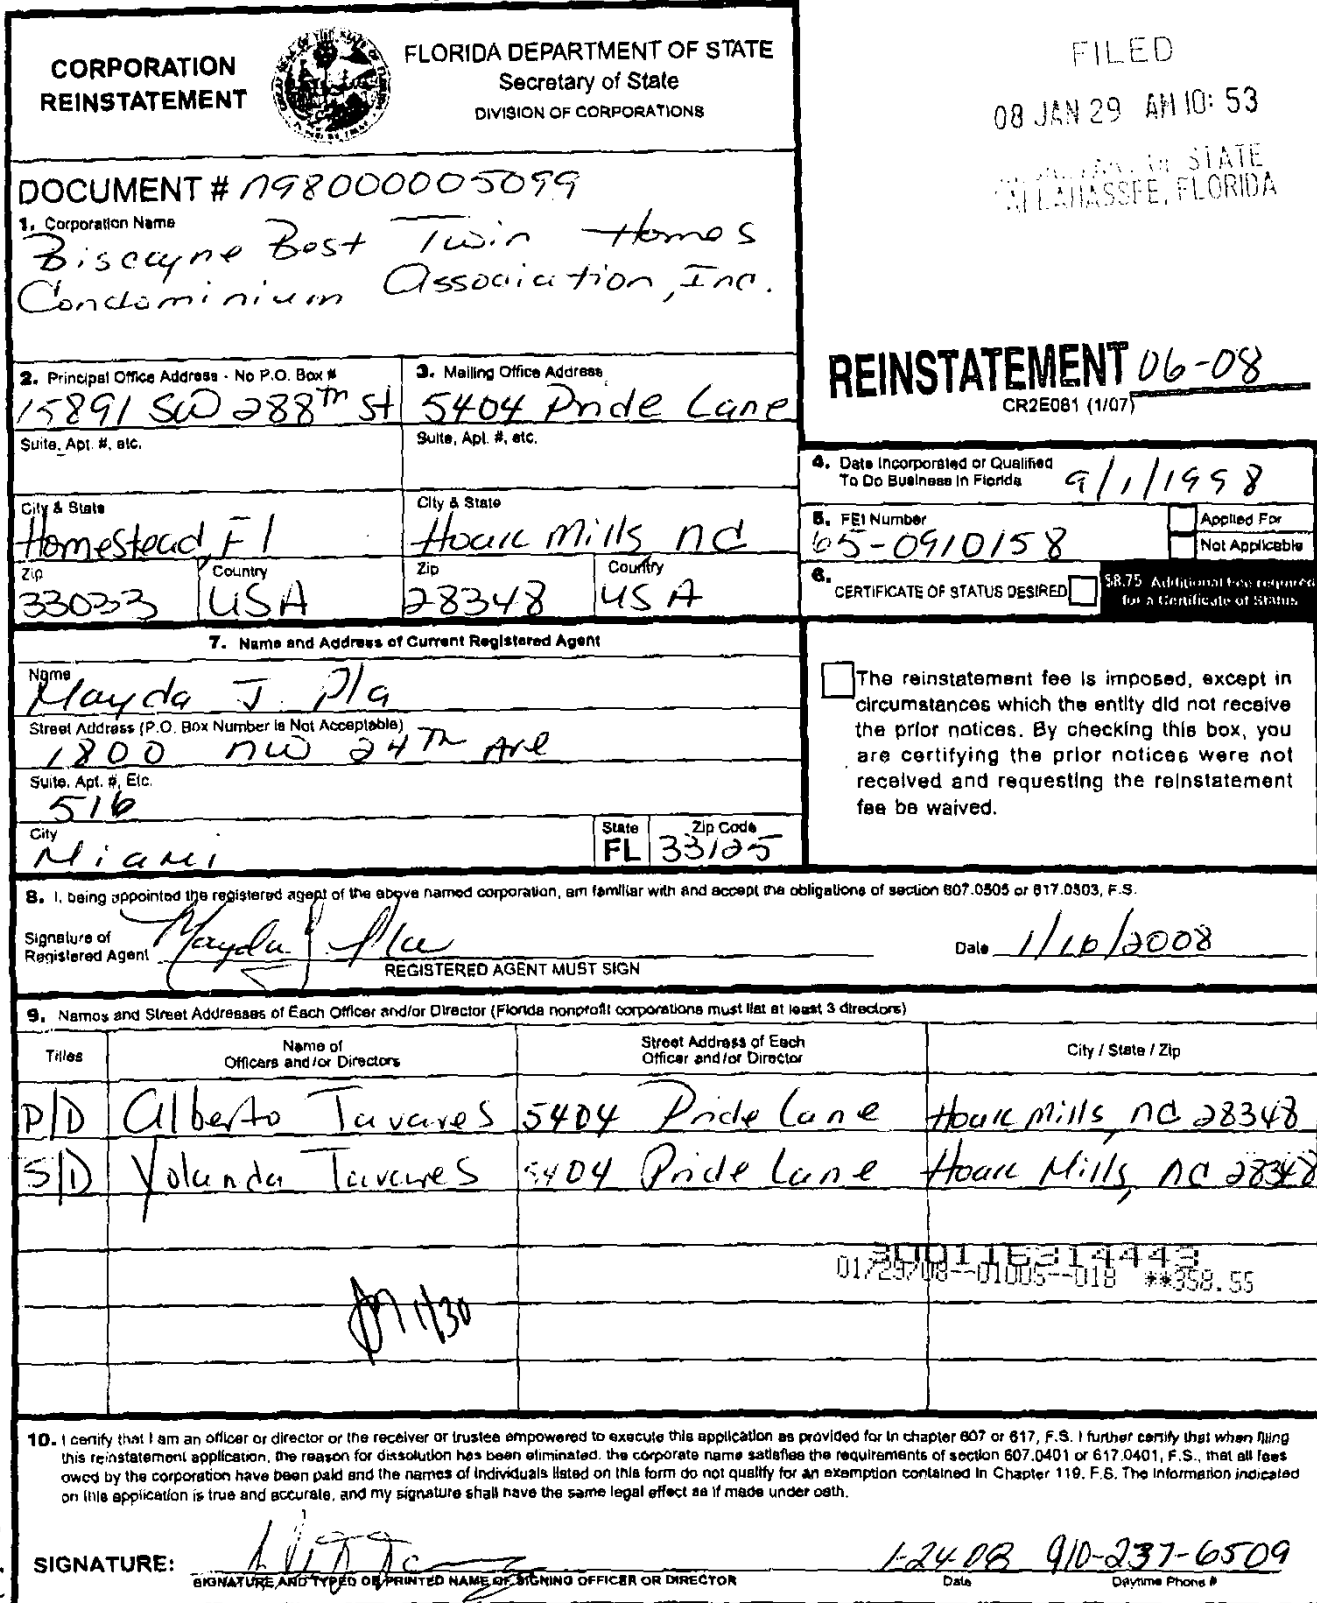 CORPORATION
REINSTATEMENT
FLORIDA DEPARTMENT OF STATE
Secretary of State
DIVISION OF CORPORATIONS
FILED
08 JAN 29 AM 10: 53
STATE
TALLAHASSEE, FLORIDA
DOCUMENT # N98000005099
1. Corporation Name
Biscayne Best Twin Homes
Condominium Association, Inc.
REINSTATEMENT 06-08
CR2E081 (1/07)
2. Principal Office Address - No P.O. Box #
15891 SW 288th St
3. Mailing Office Address
5404 Pride Lane
Suite, Apt. #, etc.
Suite, Apt. #, etc.
City & State
Homestead, Fl
City & State
Hoauc Mills, nc
Zip
33033
Country
USA
Zip
28348
Country
USA
4. Date Incorporated or Qualified
To Do Business in Florida 9/1/1998
5. FEI Number
65-0910158
Applied For
Not Applicable
6. CERTIFICATE OF STATUS DESIRED
$8.75 Additional Fee required
for a Certificate of Status
7. Name and Address of Current Registered Agent
Name
Mayda J. Pla
Street Address (P.O. Box Number is Not Acceptable)
1800 NW 24th Ave
Suite, Apt. #, Etc.
516
City
Miami
State
FL
Zip Code
33125
The reinstatement fee is imposed, except in
circumstances which the entity did not receive
the prior notices. By checking this box, you
are certifying the prior notices were not
received and requesting the reinstatement
fee be waived.
8. I, being appointed the registered agent of the above named corporation, am familiar with and accept the obligations of section 607.0505 or 617.0503, F.S.
Signature of
Registered Agent Mayda J. Pla
REGISTERED AGENT MUST SIGN
Date 1/16/2008
9. Names and Street Addresses of Each Officer and/or Director (Florida nonprofit corporations must list at least 3 directors)
Titles
Name of
Officers and/or Directors
Street Address of Each
Officer and/or Director
City / State / Zip
P/D Alberto Tavares 5404 Pride Lane Hoauc Mills, nc 28348
S/D Yolanda Tavares 5404 Pride Lane Hoauc Mills, nc 28348
300116314443
01/29/08--01005--018 **358.55
1/30
10. I certify that I am an officer or director or the receiver or trustee empowered to execute this application as provided for in chapter 607 or 617, F.S. I further certify that when filing
this reinstatement application, the reason for dissolution has been eliminated, the corporate name satisfies the requirements of section 607.0401 or 617.0401, F.S., that all fees
owed by the corporation have been paid and the names of individuals listed on this form do not qualify for an exemption contained in Chapter 119, F.S. The information indicated
on this application is true and accurate, and my signature shall have the same legal effect as if made under oath.
SIGNATURE:
SIGNATURE AND TYPED OR PRINTED NAME OF SIGNING OFFICER OR DIRECTOR
1-24-08 910-237-6509
Date
Daytime Phone #